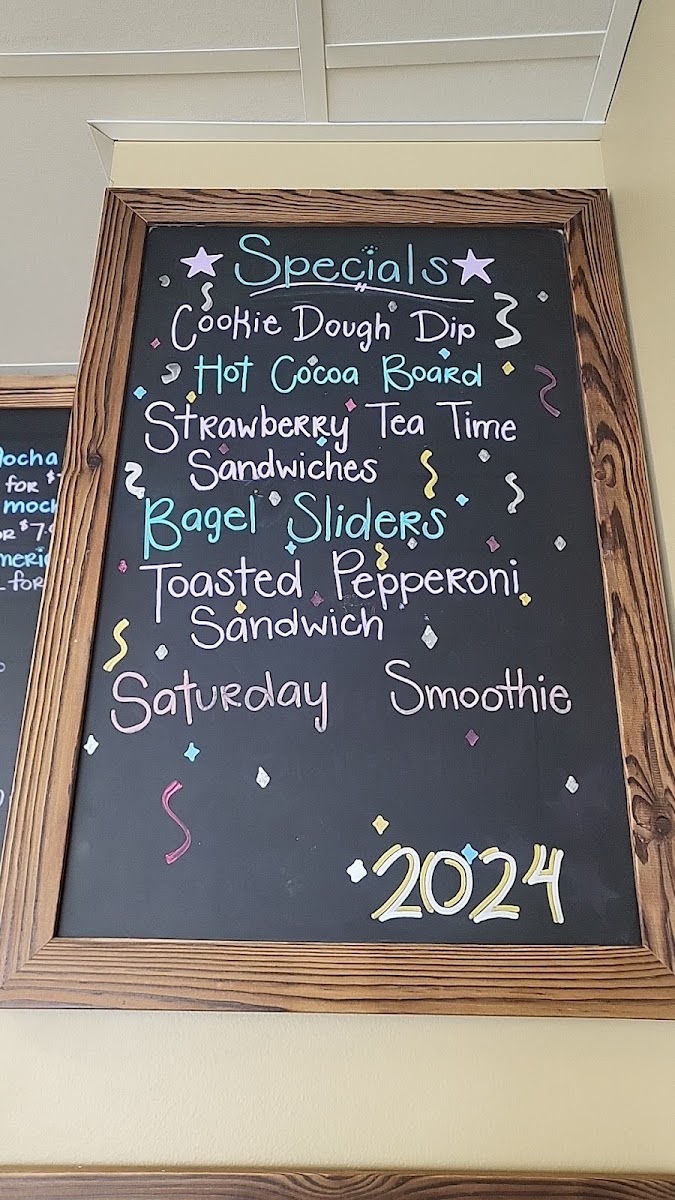 Specials
Cookie Dough Dip
Hot Cocoa Board
Strawberry Tea Time
Sandwiches
Bagel Sliders
Toasted Pepperoni
Sandwich
Saturday Smoothie
2024
Mocha
for $
moc
R $7.
meri
for